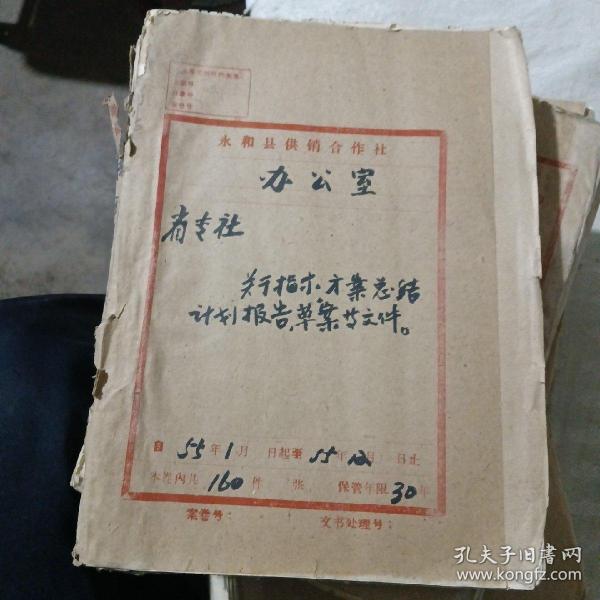 永和县供销合作社
办公室
省专社
关于指示.方案总结
计划报告、草案等文件。
自 55年1月 日起至55年12月 日止
本卷内共 160 件 张 保管年限30年
案卷号： 文书处理号：
孔夫子旧书网
www.kongfz.com